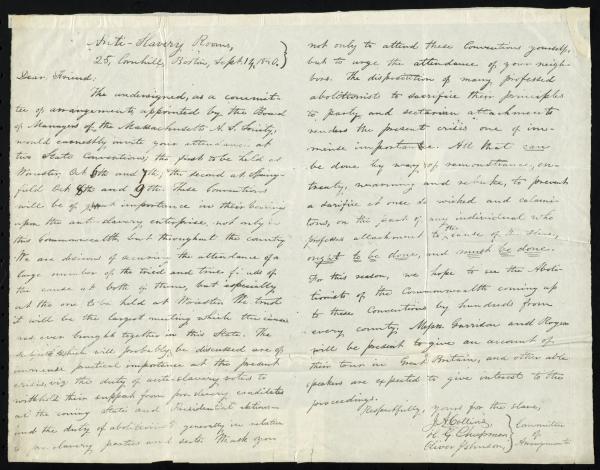 Anti-Slavery Rooms,
25, Cornhill, Boston, Sept. 14, 1840.
Dear Friend:
The undersigned, as a commit-
tee of arrangements, appointed by the Board
of Managers of the Massachusetts A. S. Society,
would earnestly invite your attendance at
two State Conventions; the first to be held at
Worcester, Oct 6th and 7th, the second at Spring-
field Oct 8th and 9th. These Conventions
will be of great importance in their bearing
upon the anti-slavery enterprise, not only in
this Commonwealth, but throughout the country
We are desirous of securing the attendance of a
large number of the tried and true friends of
the cause at both of them, but especially
at the one to be held at Worcester. We trust
it will be the largest meeting which the cause
has ever brought together in this State. The
subjects which will probably be discussed are of
immense practical importance at the present
crisis, viz. the duty of anti-slavery voters to
withhold their support from pro-slavery candidates
at the coming State and Presidential elections
and the duty of abolitionists generally in relation
to pro-slavery parties and sects. We ask you
not only to attend these Conventions yourself,
but to urge the attendance of your neigh-
bors. The disposition of many professed
abolitionists to sacrifice their principles
to party and sectarian attachments
renders the present crisis one of im-
mense importance. All that can
be done by way of remonstrance, en-
treaty, warning and rebuke, to prevent
a sacrifice at once so wicked and calami-
tous, on the part of any individual who
professes attachment to the cause of the slave,
ought to be done, and must be done.
For this reason, we hope to see the Abol-
itionists of the Commonwealth coming up
to these Conventions by hundreds from
every county. Messrs. Garrison and Rogers
will be present to give an account of
their tour in Great Britain, and other able
speakers are expected to give interest to the
proceedings.
Respectfully, yours for the slave,
J. A. Collins,
H. G. Chapman
Oliver Johnson,
Committee
of
Arrangements